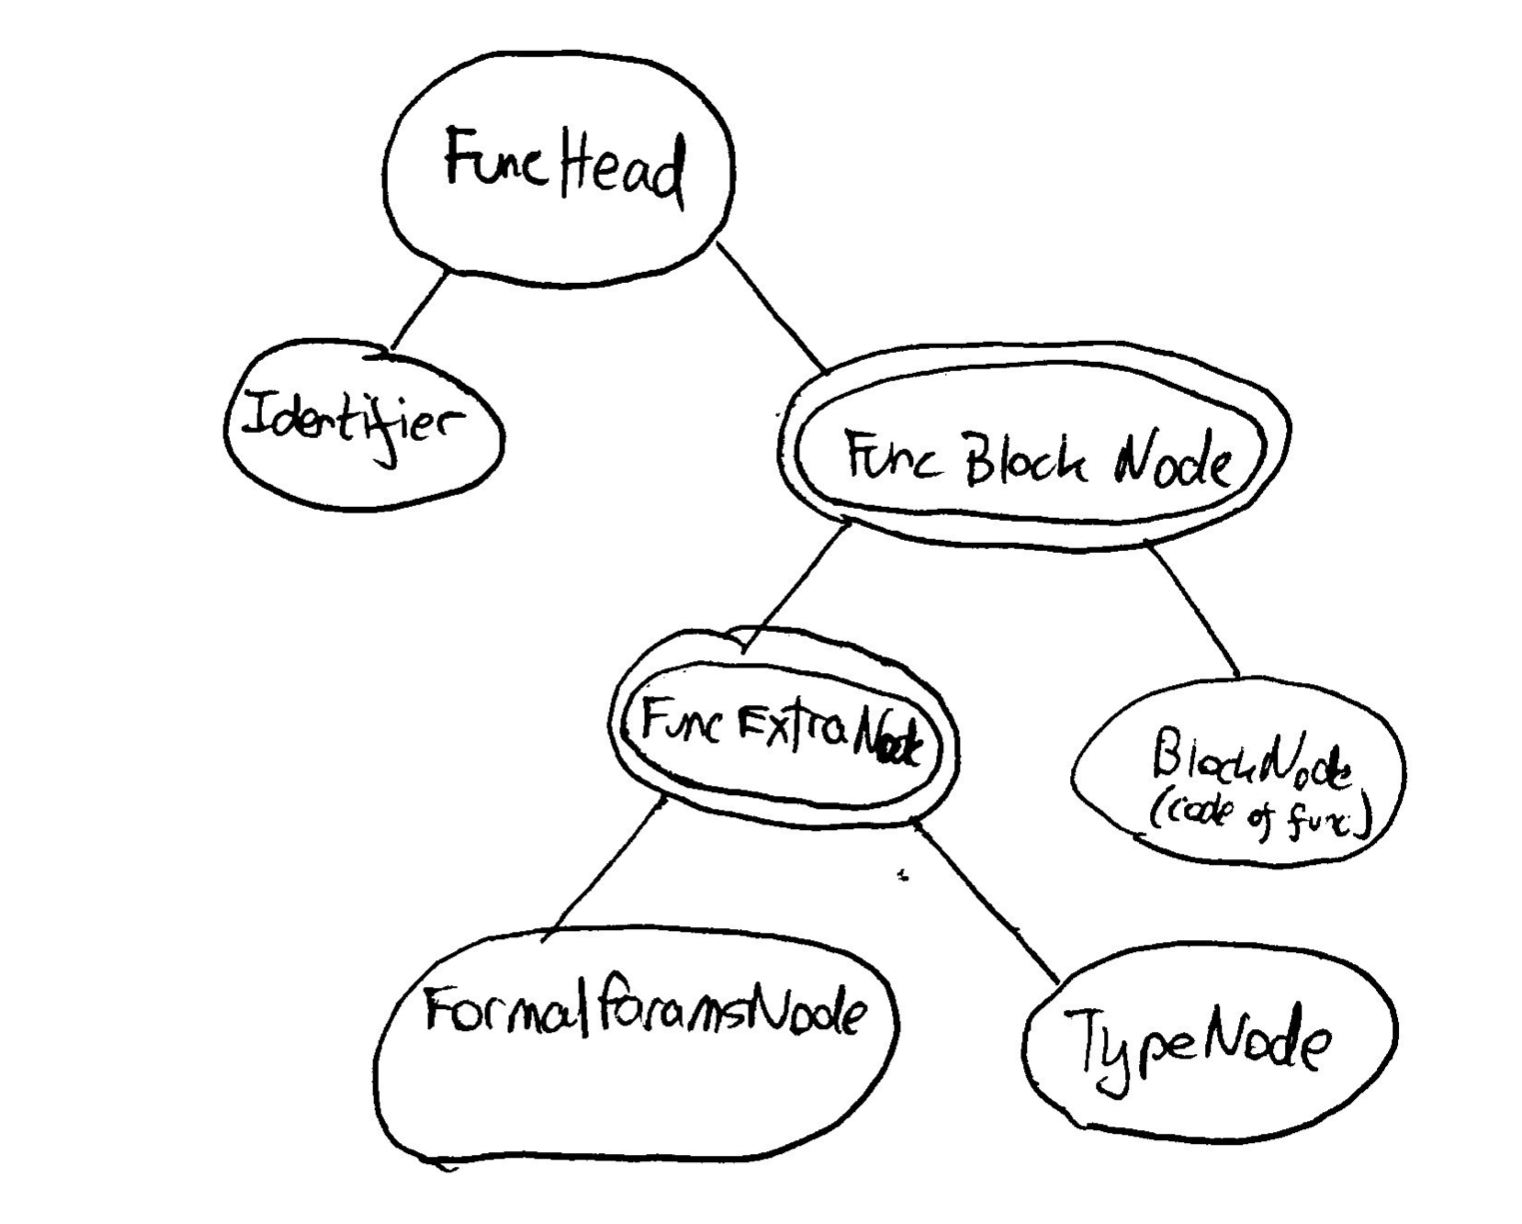 FuncHead
Identifier
Func Block Node
Func Extra Node
BlockNode
(code of func)
FormalParamsNode
TypeNode